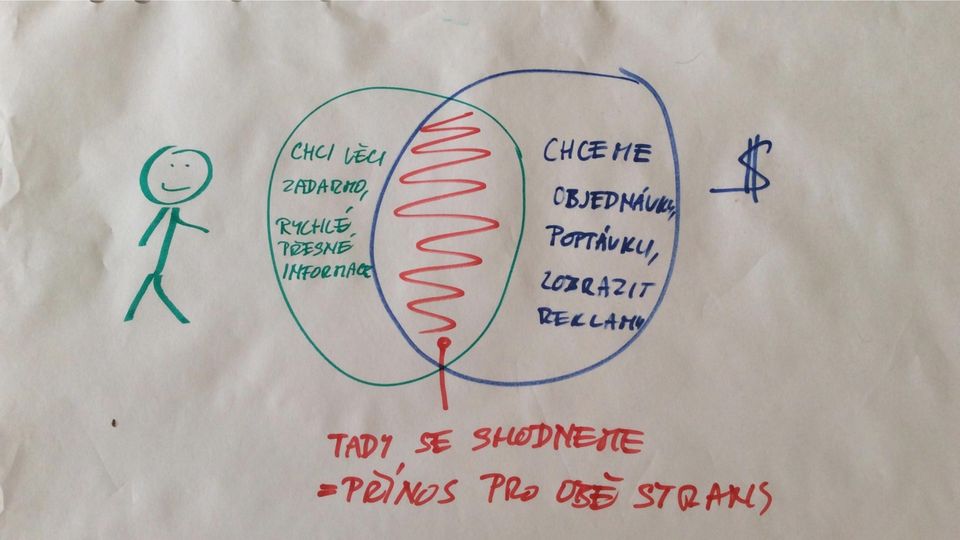 CHCI VĚCI
ZADARMO,
RYCHLÉ,
PŘESNÉ
INFORMACE
CHCEME
OBJEDNÁVKY,
POPTÁVKY,
ZOBRAZIT
REKLAMY
$
TADY SE SHODNEME
=PŘÍNOS PRO OBĚ STRANY